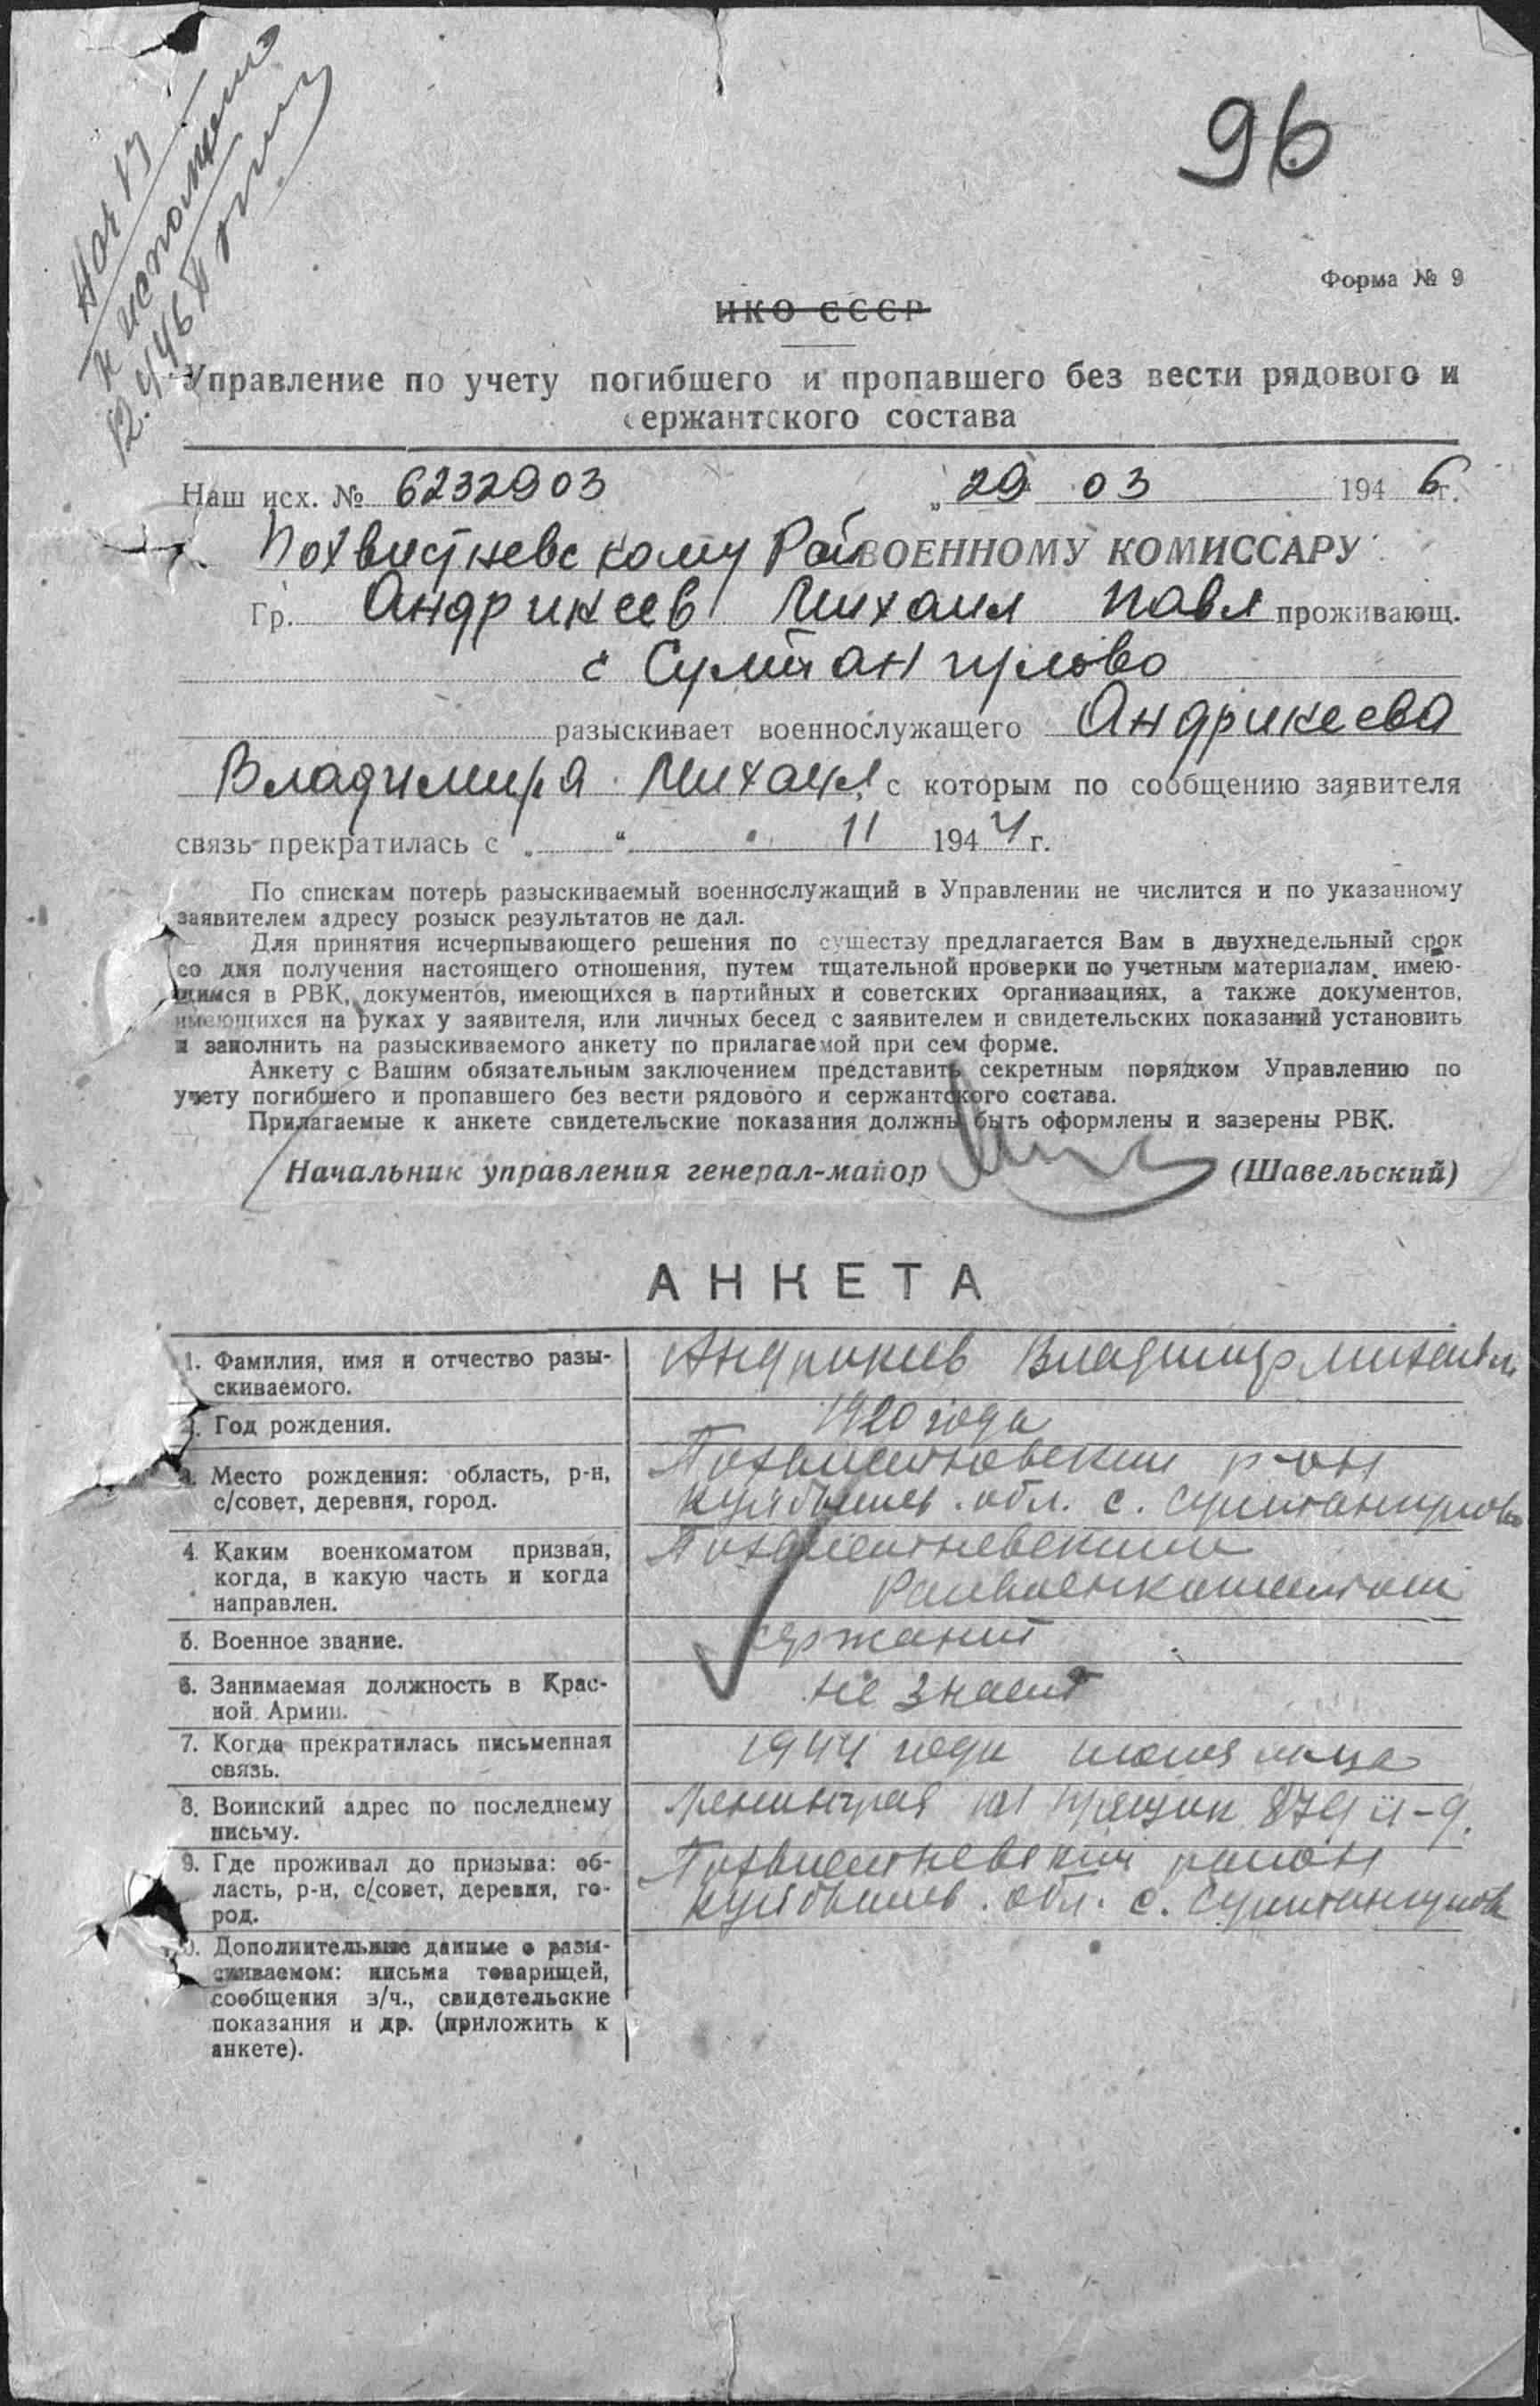 96
Нач IV
к исполнению
12.4 46
Форма № 9
НКО СССР
Управление по учету погибшего и пропавшего без вести рядового и
сержантского состава
Наш исх. № 6232903 „ 29 03 1946г.
Похвистневскому Рай ВОЕННОМУ КОМИССАРУ
Гр. Андрикеев Михаил Павл проживающ.
с Султангулово
разыскивает военнослужащего Андрикеева
Владимира Михаил, с которым по сообщению заявителя
связь прекратилась с „ “ 11 1944 г.
По спискам потерь разыскиваемый военнослужащий в Управлении не числится и по указанному
заявителем адресу розыск результатов не дал.
Для принятия исчерпывающего решения по существу предлагается Вам в двухнедельный срок
со дня получения настоящего отношения, путем тщательной проверки по учетным материалам, имею-
щимся в РВК, документов, имеющихся в партийных и советских организациях, а также документов,
имеющихся на руках у заявителя, или личных бесед с заявителем и свидетельских показаний установить
и заполнить на разыскиваемого анкету по прилагаемой при сем форме.
Анкету с Вашим обязательным заключением представить секретным порядком Управлению по
учету погибшего и пропавшего без вести рядового и сержантского состава.
Прилагаемые к анкете свидетельские показания должны быть оформлены и заверены РВК.
Начальник управления генерал-майор (Шавельский)
АНКЕТА
1. Фамилия, имя и отчество разы- Андрикеев Владимир Михайл
скиваемого.
2. Год рождения. 1920 года
3. Место рождения: область, р-н, Похвистневский р-он
с/совет, деревня, город. Куйбышев. обл. с. Султангулово
4. Каким военкоматом призван, Похвистневским
когда, в какую часть и когда Райвоенкоматом
направлен.
5. Военное звание. сержант
6. Занимаемая должность в Крас- не знает
ной Армии.
7. Когда прекратилась письменная 1944 года июля м-ца
связь.
8. Воинский адрес по последнему Ленинград ящик 879
письму.
9. Где проживал до призыва: об- Похвистневский район
ласть, р-н, с/совет, деревня, го- Куйбышев. обл. с. Султангулово
род.
10. Дополнительные данные о разы-
скиваемом: письма товарищей,
сообщения в/ч., свидетельские
показания и др. (приложить к
анкете).